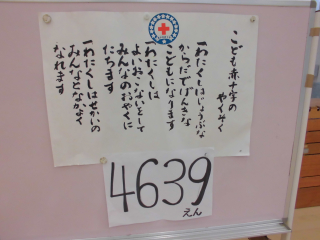 こども赤十字の
やくそく
一わたくしはじょうぶな
からだでげんきな
こどもになります
一わたくしは
よいおこないをして
みんなのおやくに
たちます
一わたくしはせかいの
みんなとなかよく
なれます
4639
えん